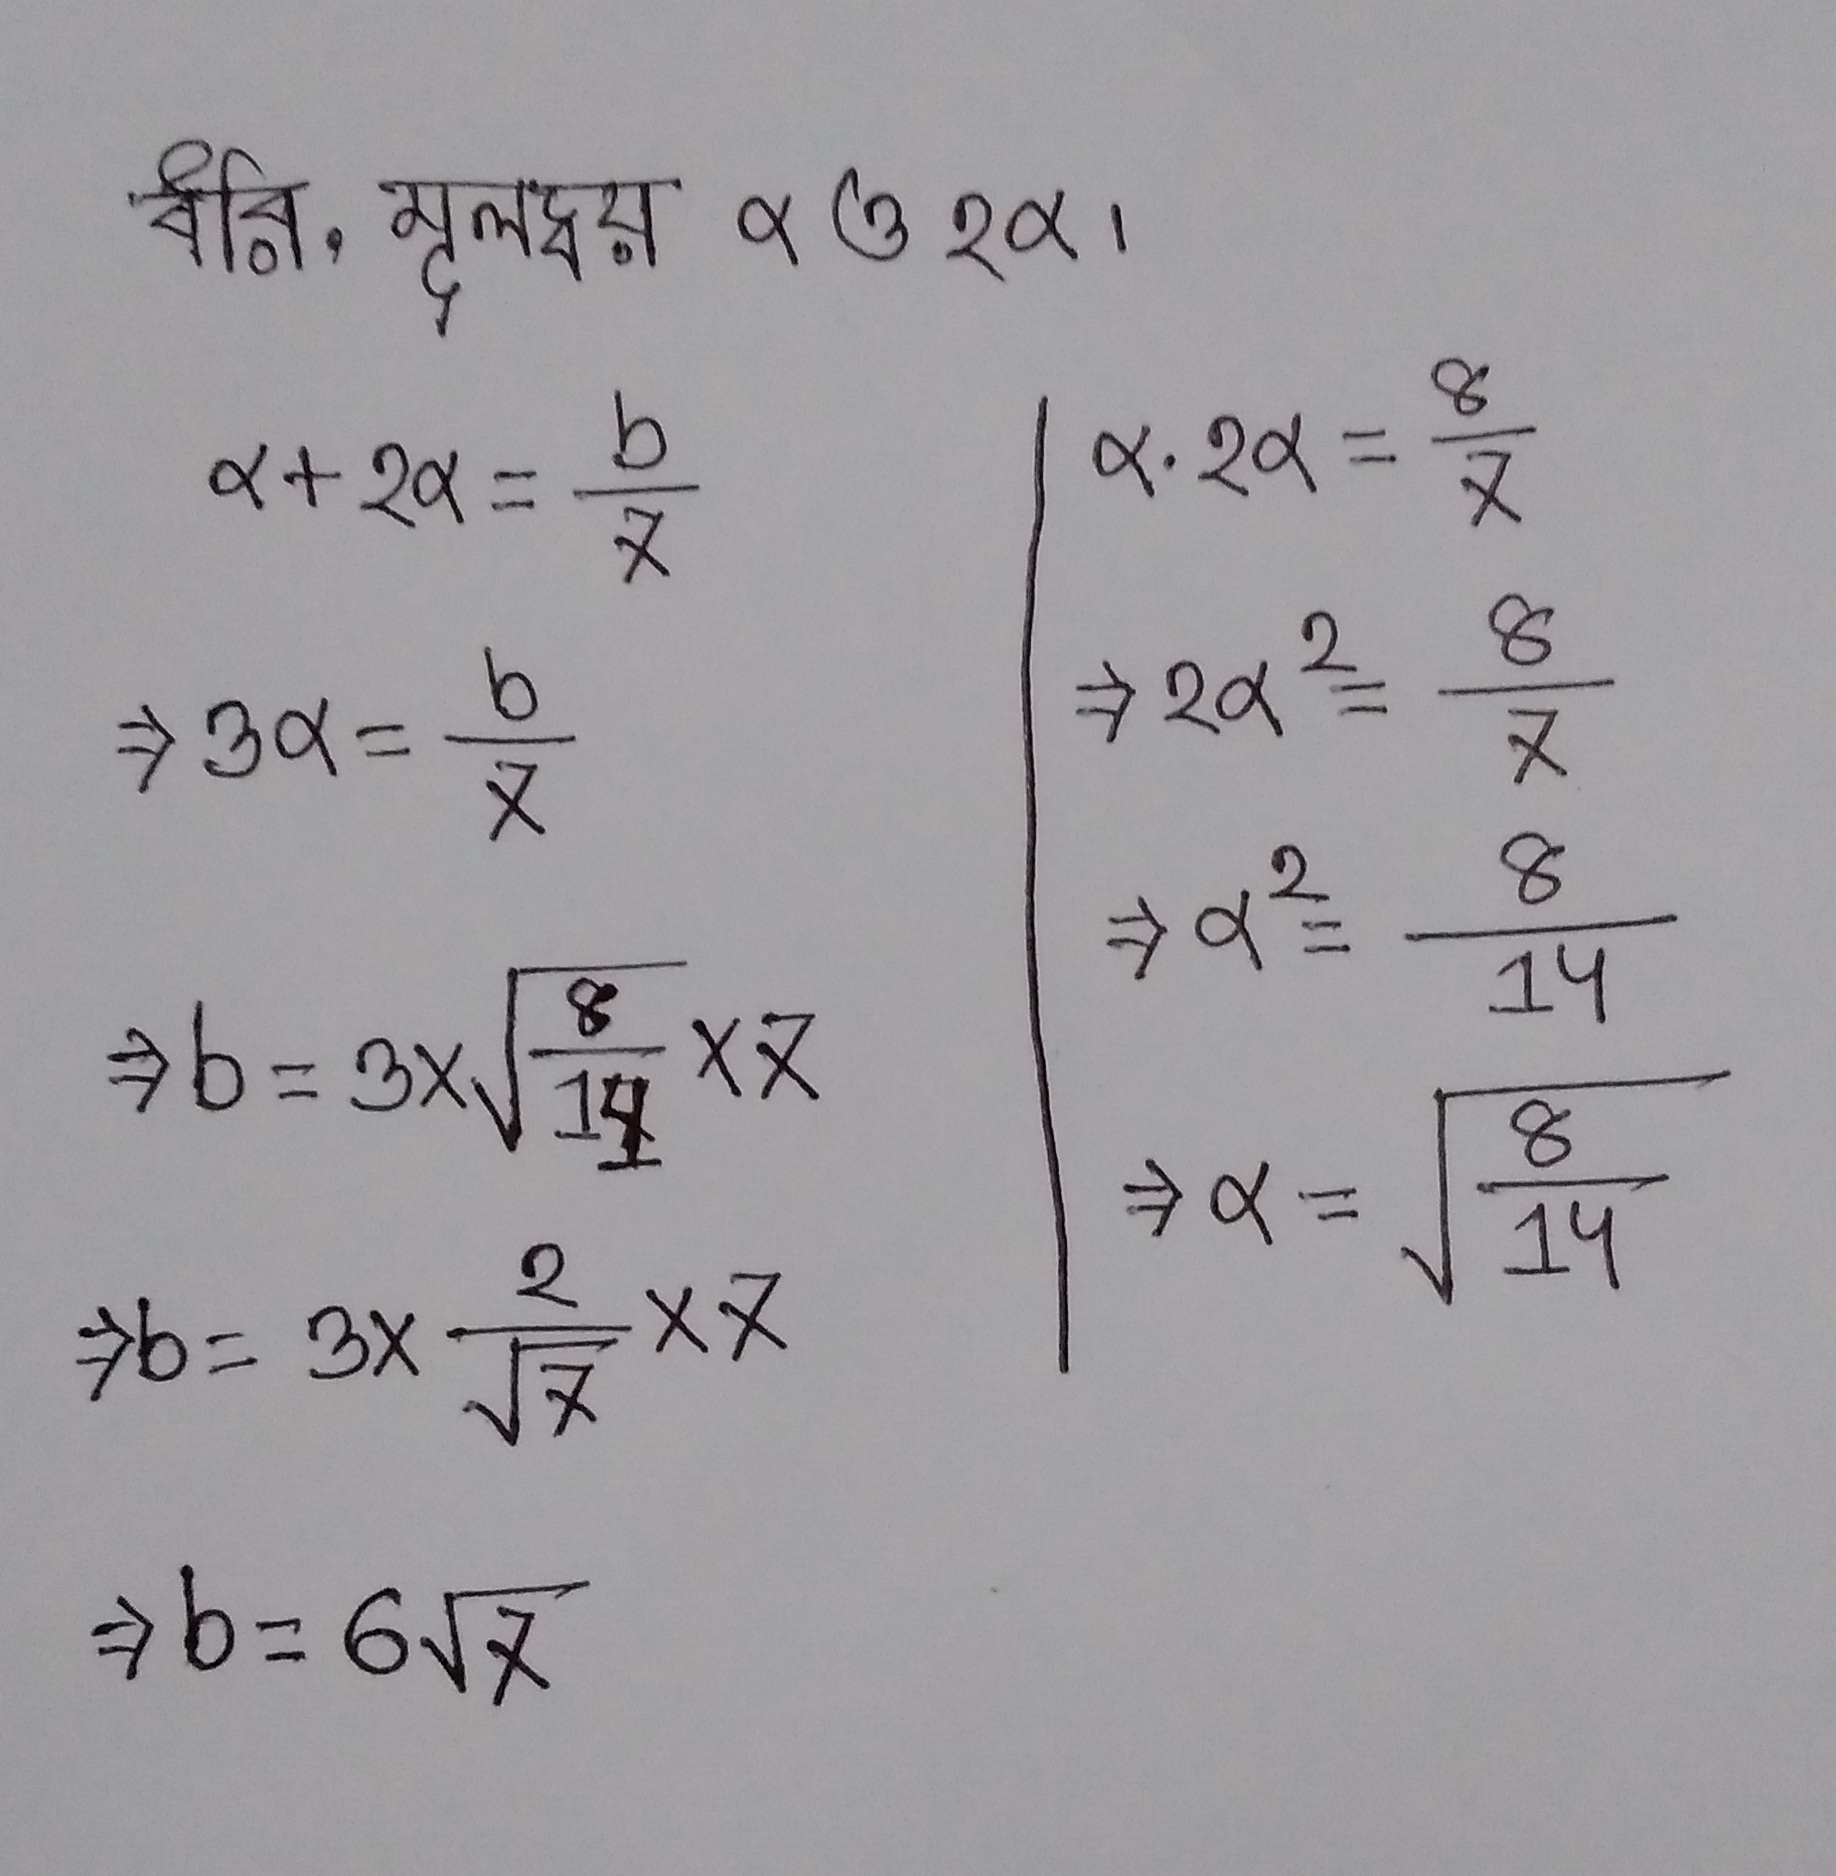 ধরি, মূলদ্বয় α ও 2α।
α + 2α = b/7
⇒ 3α = b/7
⇒ b = 3 × √(8/14) × 7
⇒ b = 3 × 2/√7 × 7
⇒ b = 6√7
α . 2α = 8/7
⇒ 2α² = 8/7
⇒ α² = 8/14
⇒ α = √(8/14)